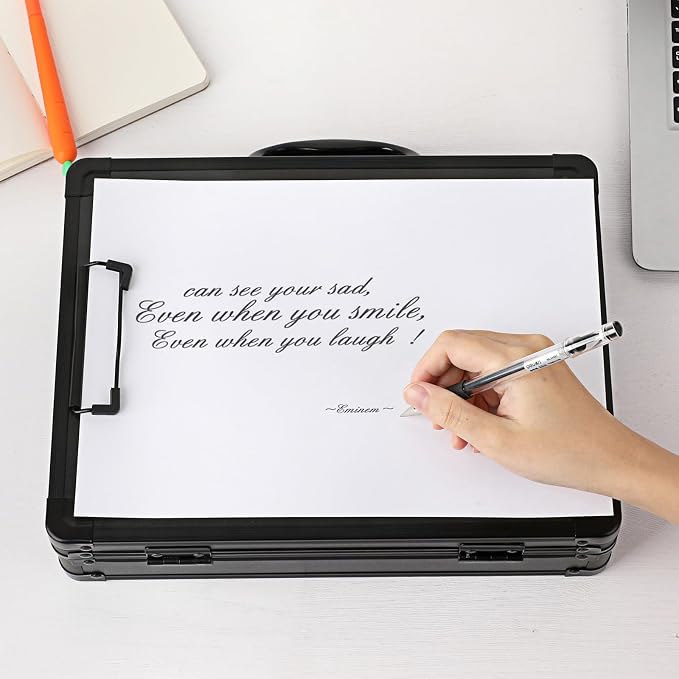 can see your sad,
Even when you smile,
Even when you laugh !
~Eminem~